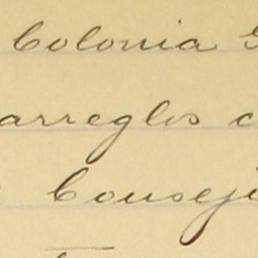 Colonia
arreglos
Conseji